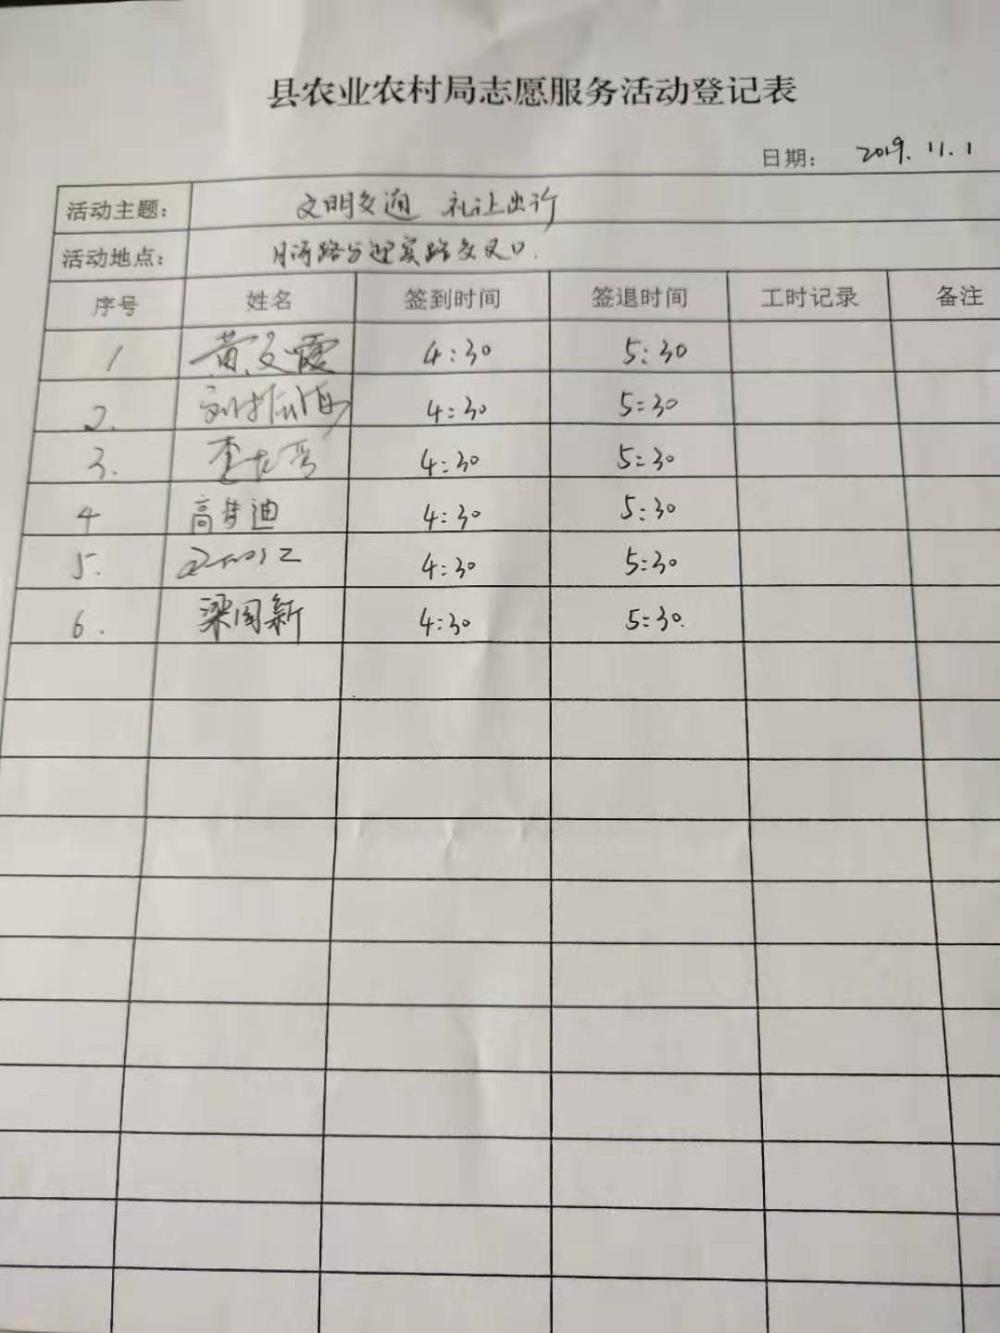 县农业农村局志愿服务活动登记表
日期: 2019.11.1
活动主题: 文明交通 礼让出行
活动地点: 月河路与迎宾路交叉口.
序号 姓名 签到时间 签退时间 工时记录 备注
1 黄文霞 4:30 5:30
2. 刘振海 4:30 5:30
3. 李 4:30 5:30
4 高梦迪 4:30 5:30
5. 4:30 5:30
6. 梁国新 4:30 5:30.